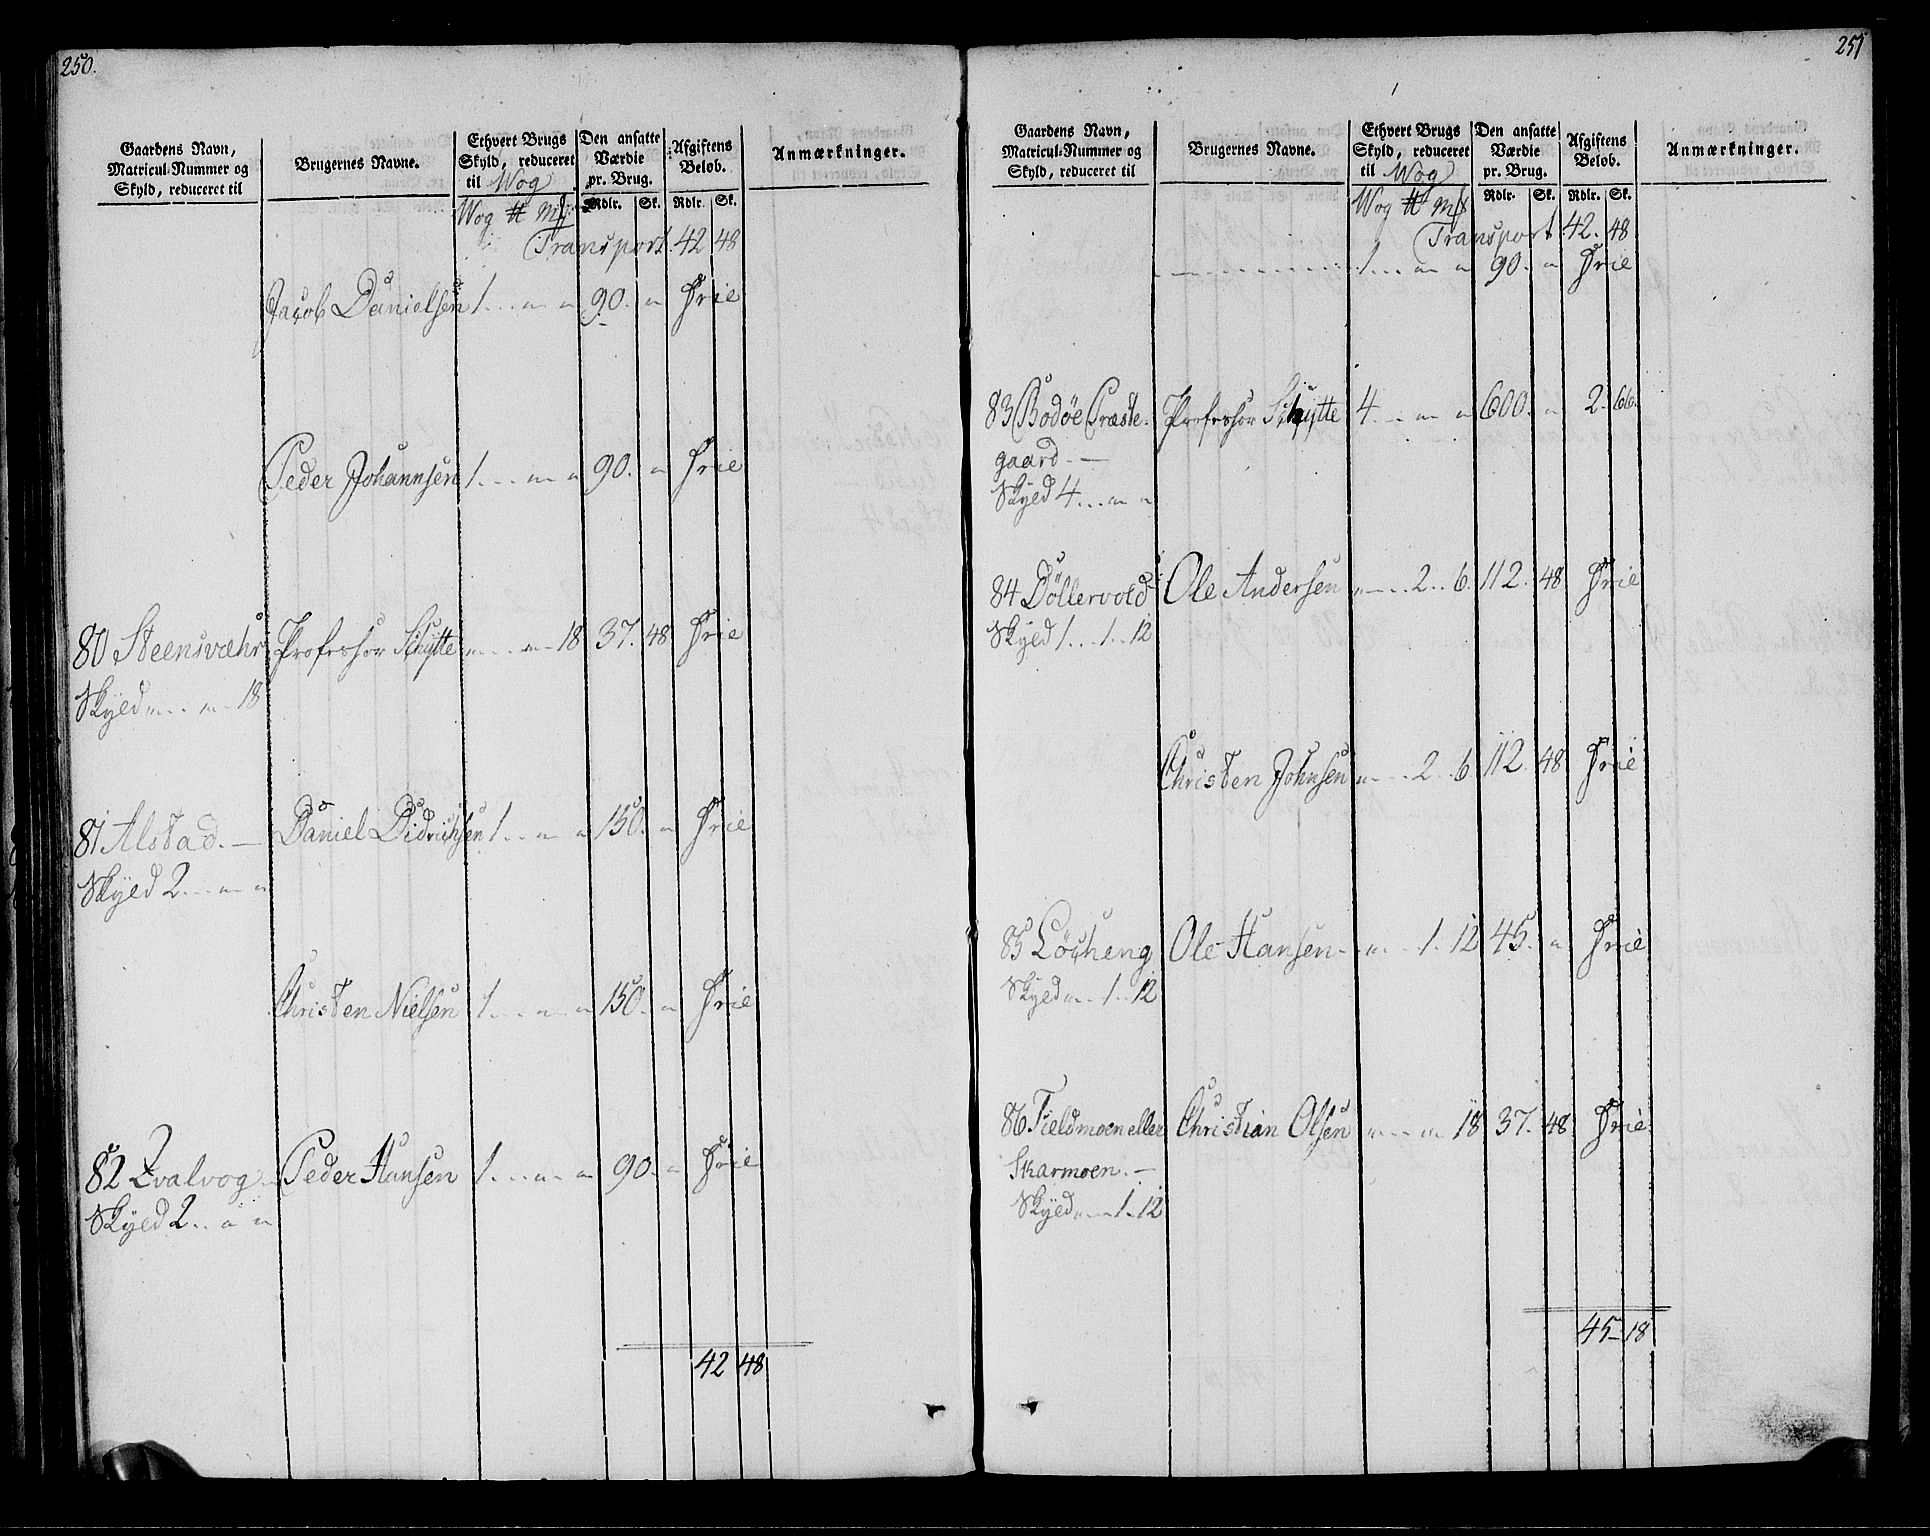 250.
Gaardens Navn, Matricul-Nummer og Skyld, reduceret til
Brugernes Navne.
Ethvert Brugs Skyld, reduceret til Wog
Den ansatte Værdie pr. Brug.
Afgiftens Beløb.
Anmærkninger.
Wog ℔ Mk Rdlr. Sk. Rdlr. Sk.
Transport 42 48
Jacob Danielsen 1 . . . „ „ 90. „ Frie
Peder Johannsen 1 . . . „ „ 90. „ Frie
80 Steensvæhr Professor Schytte „ . . . „ 18 37. 48 Frie
Skyld „ . . „ 18
81 Alstad. — Daniel Didrichsen 1 . . „ „ 150. „ Frie
Skyld 2 . . „ „
Christen Nielsen 1 . . . „ „ 150. „ Frie
82 Qvalvog Peder Hansen 1 . . . „ „ 90. „ Frie
Skyld 2 . . „ „
42 48
251
Gaardens Navn, Matricul-Nummer og Skyld, reduceret til
Brugernes Navne.
Ethvert Brugs Skyld, reduceret til Wog
Den ansatte Værdie pr. Brug.
Afgiftens Beløb.
Anmærkninger.
Wog ℔ Mk Rdlr. Sk. Rdlr. Sk.
Transport 42. 48
1 . . . „ „ 90. „ Frie
83 Bodøe Præste- Professor Schytte 4 . . . „ „ 600. „ 2. 66.
gaard. —
Skyld 4 . . . „ „
84 Döllervold Ole Andersen „ — . . 2 . . 6. 112. 48 Frie
Skyld 1 . . . 1 . . 12
Christen Johnsen „ . . . 2 . . 6 112. 48 Frie
85 Löcheng Ole Hansen. „ . . 1. 12 45. „ Frie
Skyld „ . . 1 . . 12
86 Fieldmoen eller Christian Olsen „ . . . „ 18 37. 48 Frie
Skarmoen. —
Skyld „ . . . 1 . 12
45 — 18